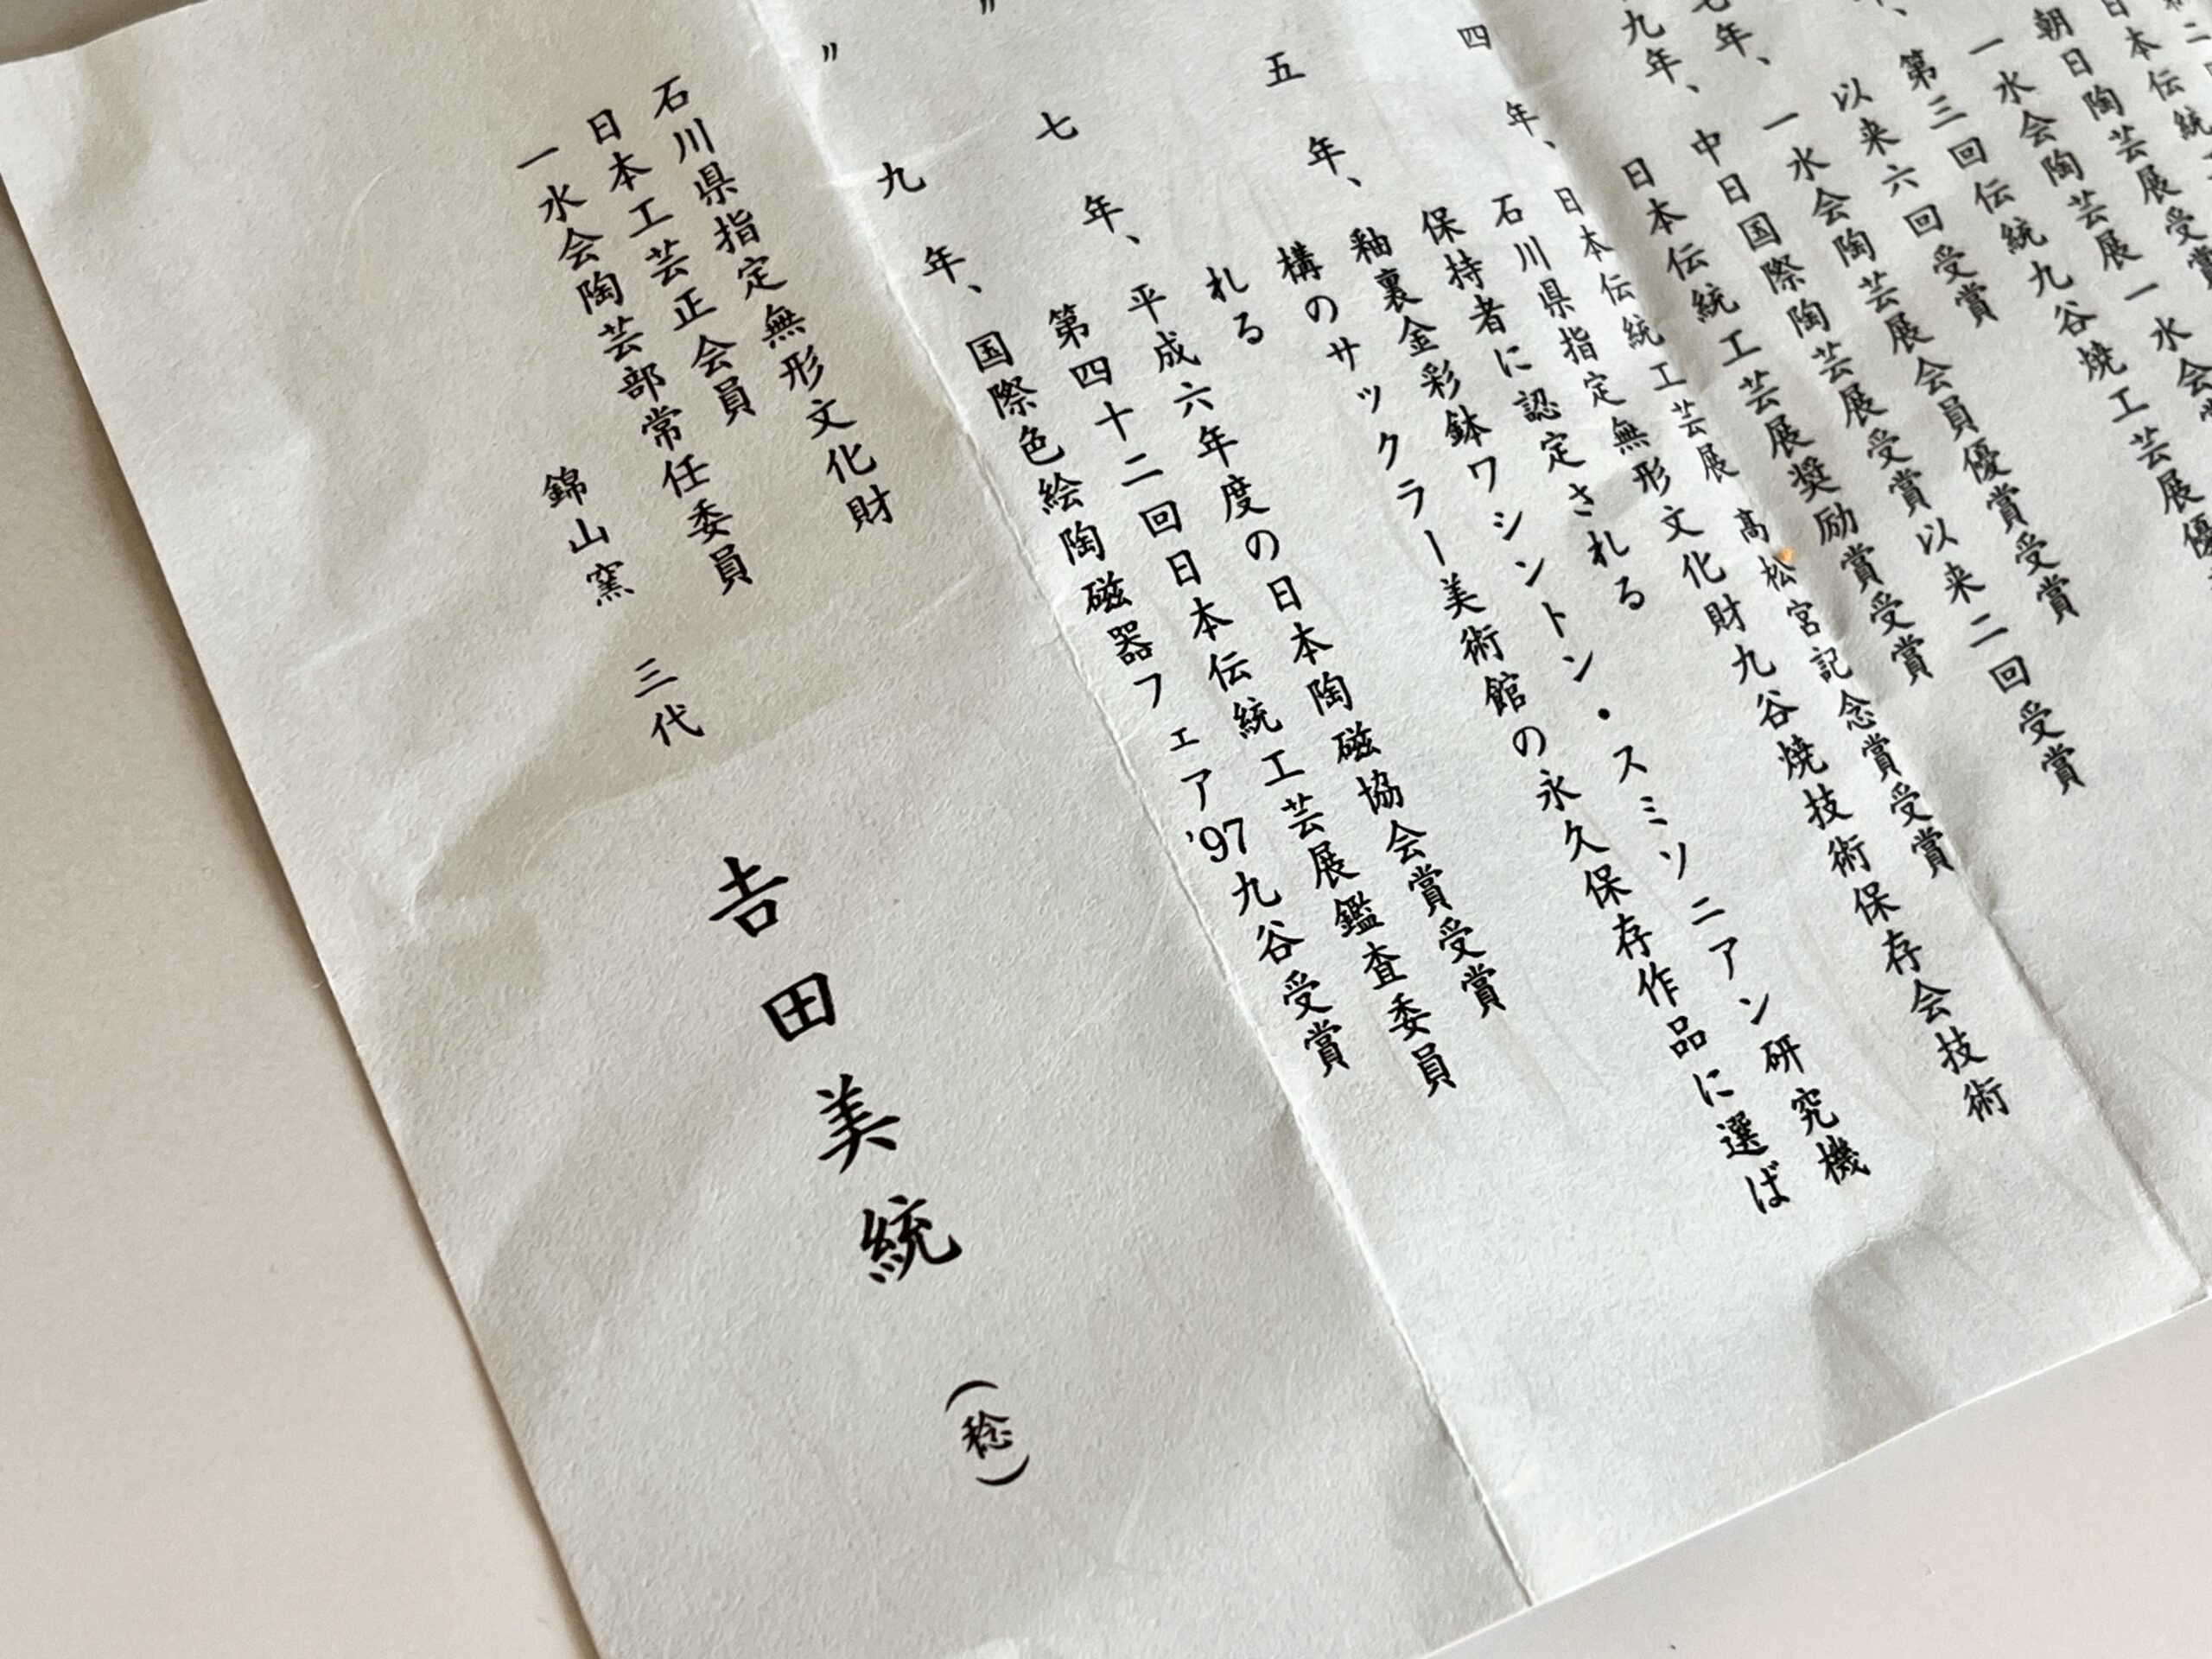 朝日陶芸展受賞
一水会陶芸展一水会賞
第三回伝統九谷焼工芸展優
以来六回受賞
七年、一水会陶芸展会員優賞受賞
九年、中日国際陶芸展受賞以来二回受賞
日本伝統工芸展奨励賞受賞
四年、日本伝統工芸展 高松宮記念賞受賞
石川県指定無形文化財九谷焼技術保存会技術
保持者に認定される
五年、釉裏金彩鉢ワシントン・スミソニアン研究機
構のサックラー美術館の永久保存作品に選ば
れる
〃 七年、平成六年度の日本陶磁協会賞受賞
第四十二回日本伝統工芸展鑑査委員
〃 九年、国際色絵陶磁器フェア'97九谷受賞
石川県指定無形文化財
日本工芸正会員
一水会陶芸部常任委員
錦山窯 三代
𠮷田美統(稔)